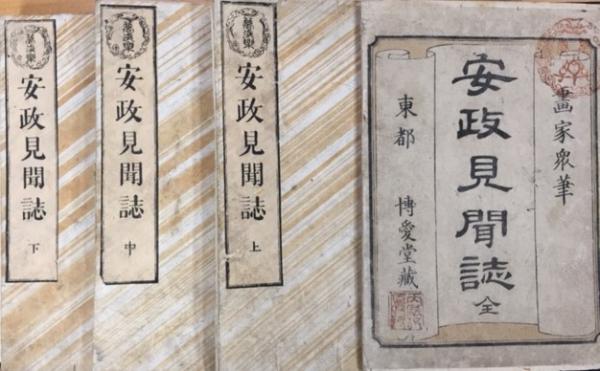 畫家衆筆
安政見聞誌 全
東都 博愛堂藏
安政見聞誌 上
安政見聞誌 中
安政見聞誌 下